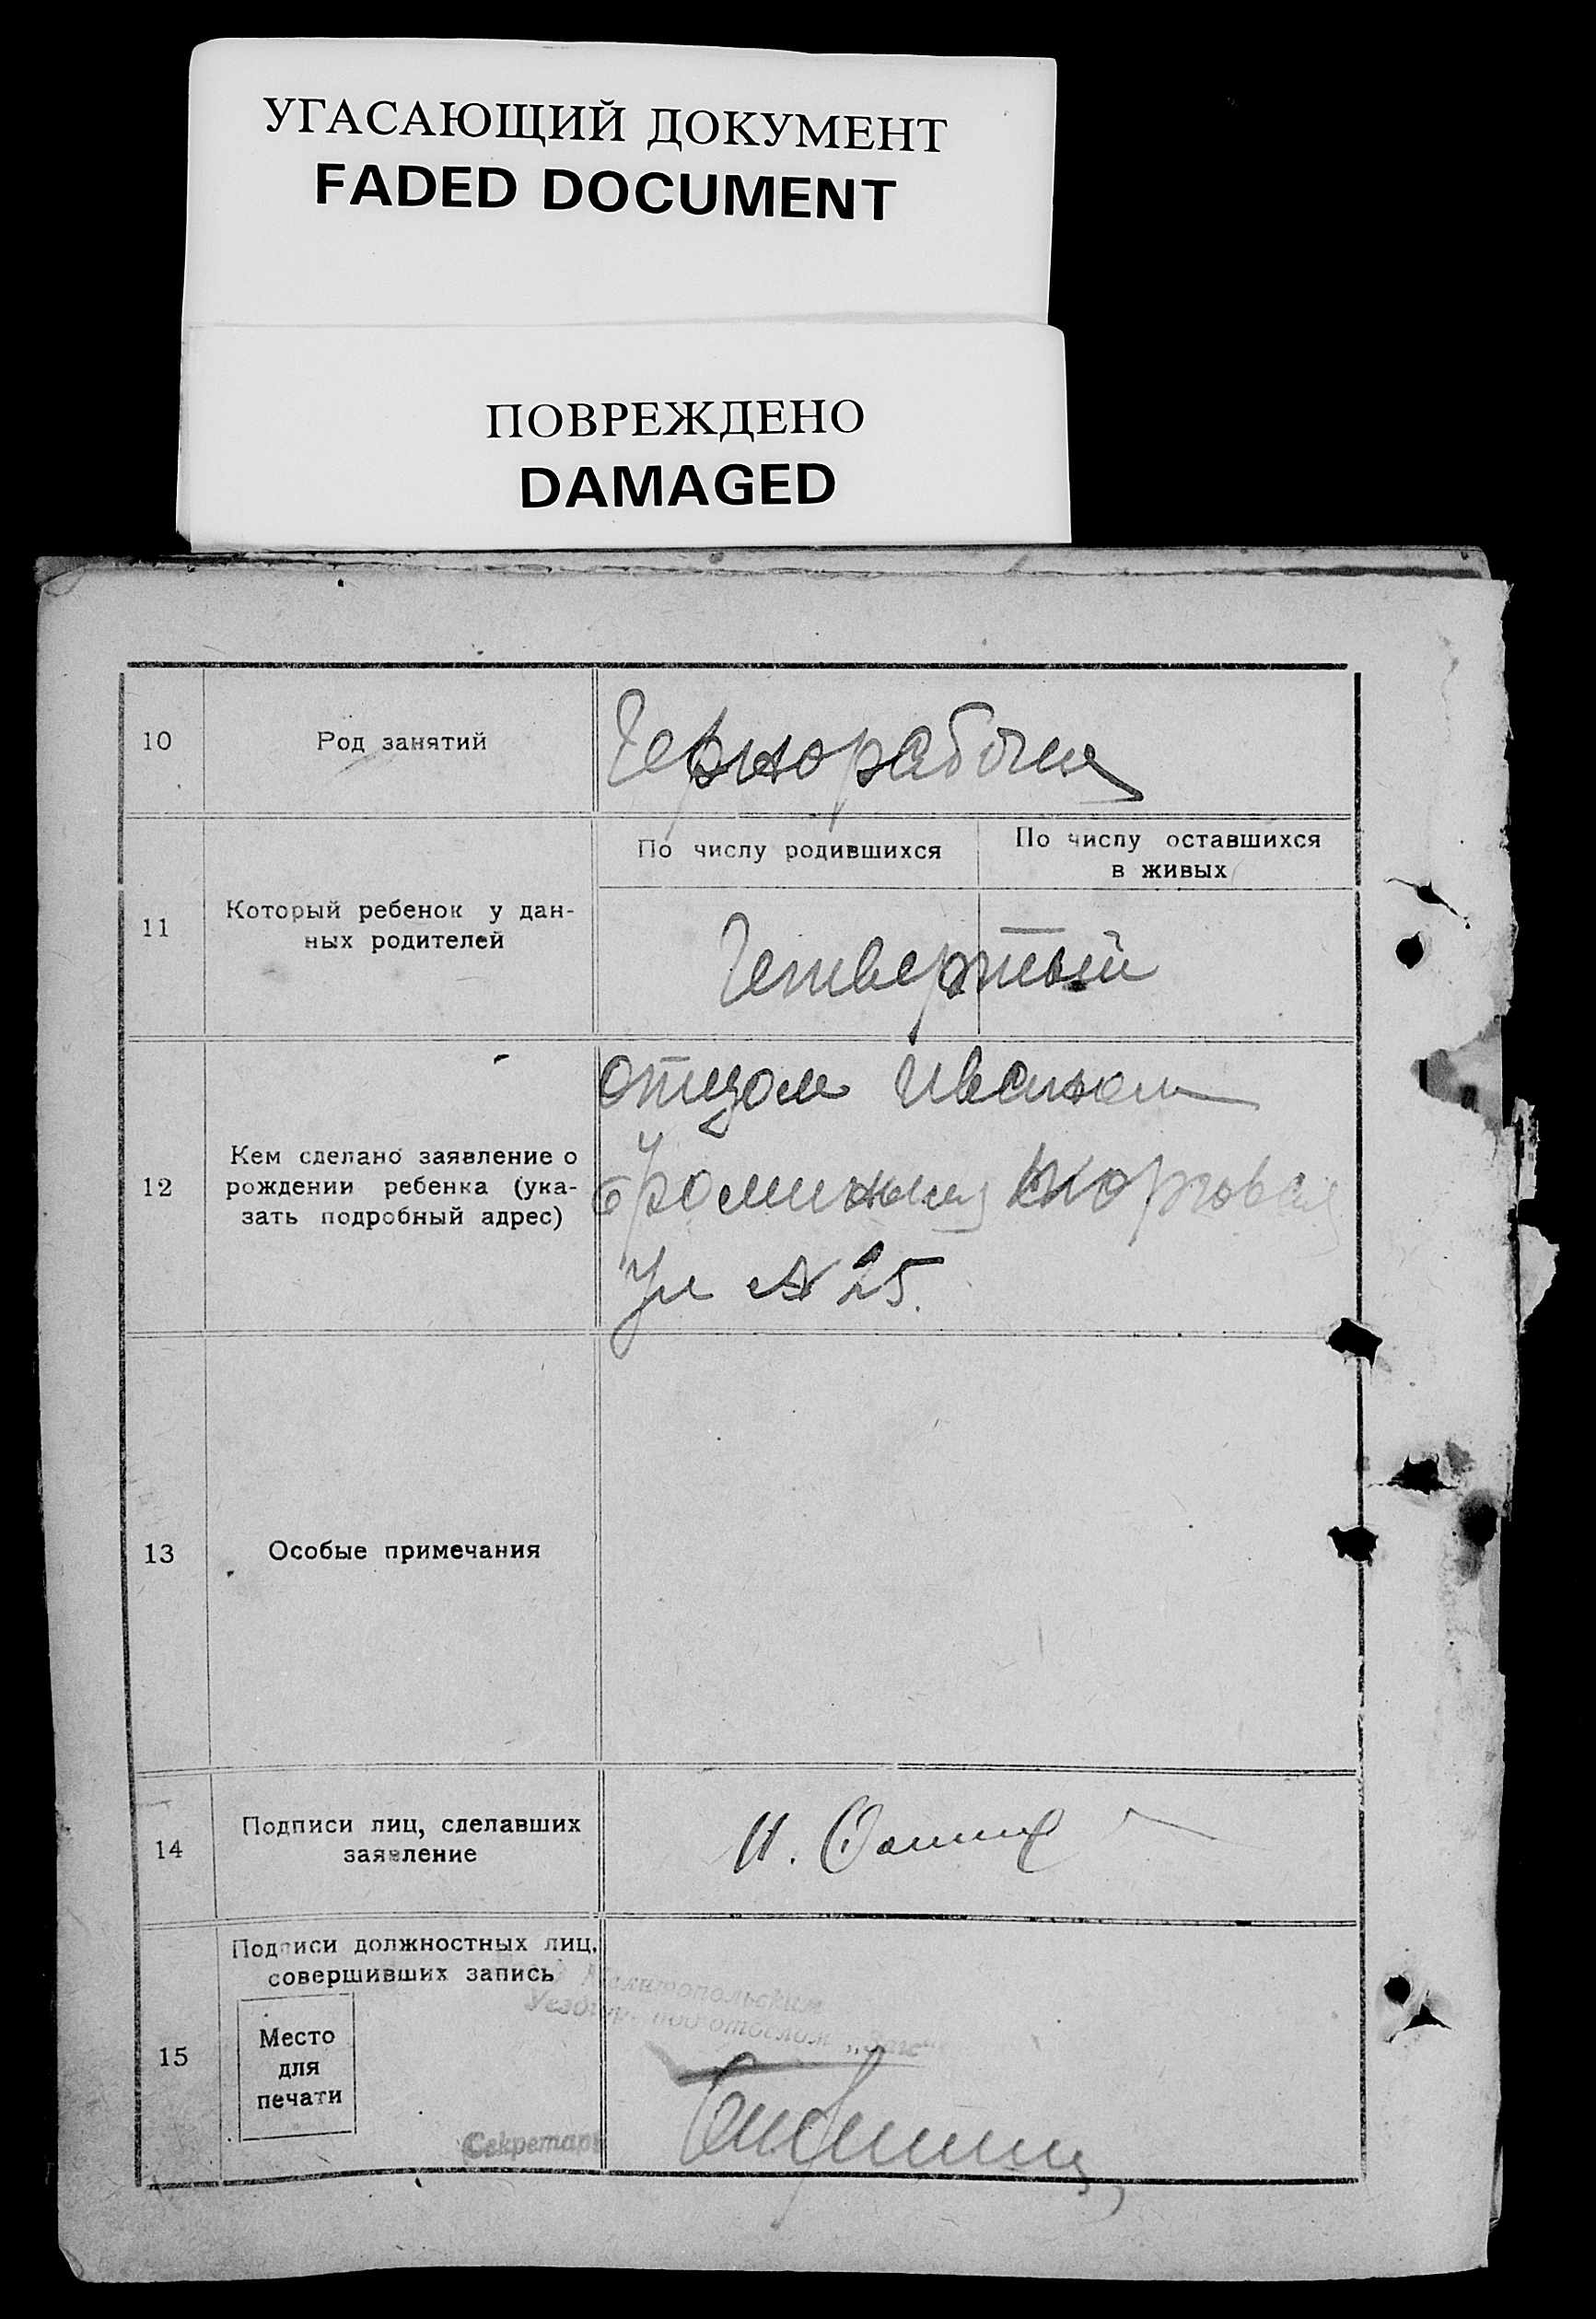 УГАСАЮЩИЙ ДОКУМЕНТ
FADED DOCUMENT
ПОВРЕЖДЕНО
DAMAGED
10
Род занятий
Чернорабочий
11
Который ребенок у дан-
ных родителей
По числу родившихся
По числу оставшихся
в живых
Четвертый
12
Кем сделано заявление о
рождении ребенка (ука-
зать подробный адрес)
отцом Иваном
Ул № 25.
13
Особые примечания
14
Подписи лиц, сделавших
заявление
И.
15
Подписи должностных лиц,
совершивших запись
Место
для
печати
под отделом „Загс"
Секретарь